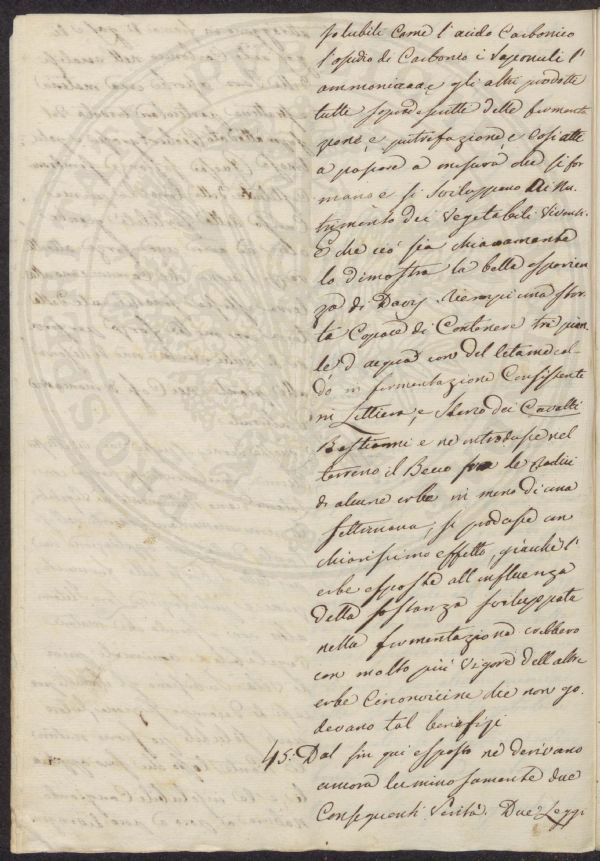 solubili come l'acido Carbonico
l'ossido di Carbonio i Saponuli l'
ammoniaca e gli altri prodotti
tutte della fermenta
zione, e putrefazione, e così atte
a passare a misura che si for
mano e si sviluppano di nu-
trimento dei Vegetabili viventi
E che ciò sia chiaramente
lo dimostra la bella esperien
za di Davy. Riempì una stor
ta Capace di Contenere tre pin
te d'acqua con del letame cal-
do in fermentazione Consistente
in Lettiera, e Sterco dei Cavalli
e ne introdusse nel
terreno il Becco fra le Radici
di alcune erbe in meno di una
settimana, si produsse un
chiarissimo effetto, giacchè l'
erbe esposte all'influenza
della sostanza sviluppata
nella fermentazione crebbero
con molto più vigore dell'altre
erbe Circonvicine che non go-
devano tal benefizj
45. Dal fin qui esposto ne derivano
ancora luminosamente due
Conseguenti Verità. Due Leggi